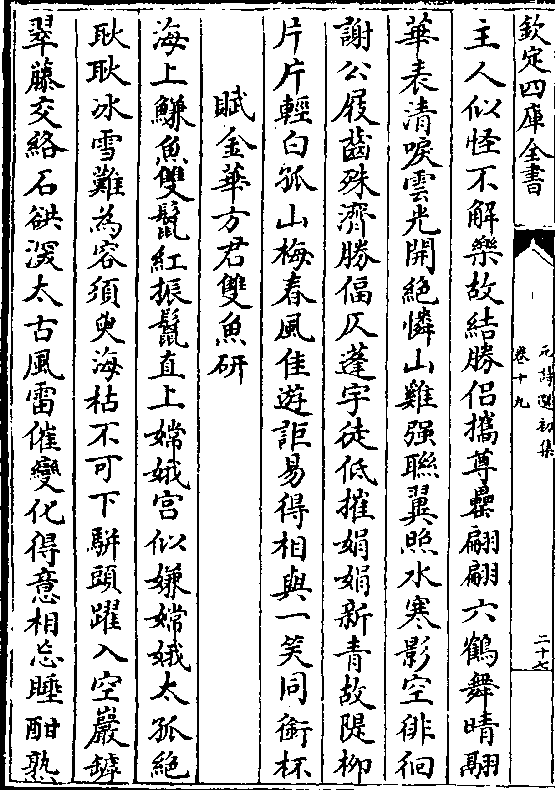 欽定四庫全書
元詩選初集
卷十九
二十七
主人似怪不解樂故結勝侣攜尊罍翩翩六鶴舞晴翮
華表清唳雲光開絶憐山雞强聯翼照水寒影空徘徊
謝公屐齒殊濟勝偪仄蓬宇徒低摧娟娟新青故隄柳
片片輕白孤山梅春風佳遊詎易得相與一笑同銜杯
賦金華方君雙魚研
海上鰜魚雙鬛紅振鬛直上嫦娥宮似嫌嫦娥太孤絶
耿耿冰雪難為容須臾海枯不可下駢頭躍入空巖罅
翠藤交絡石谼深太古風雷催變化得意相忘睡酣熟